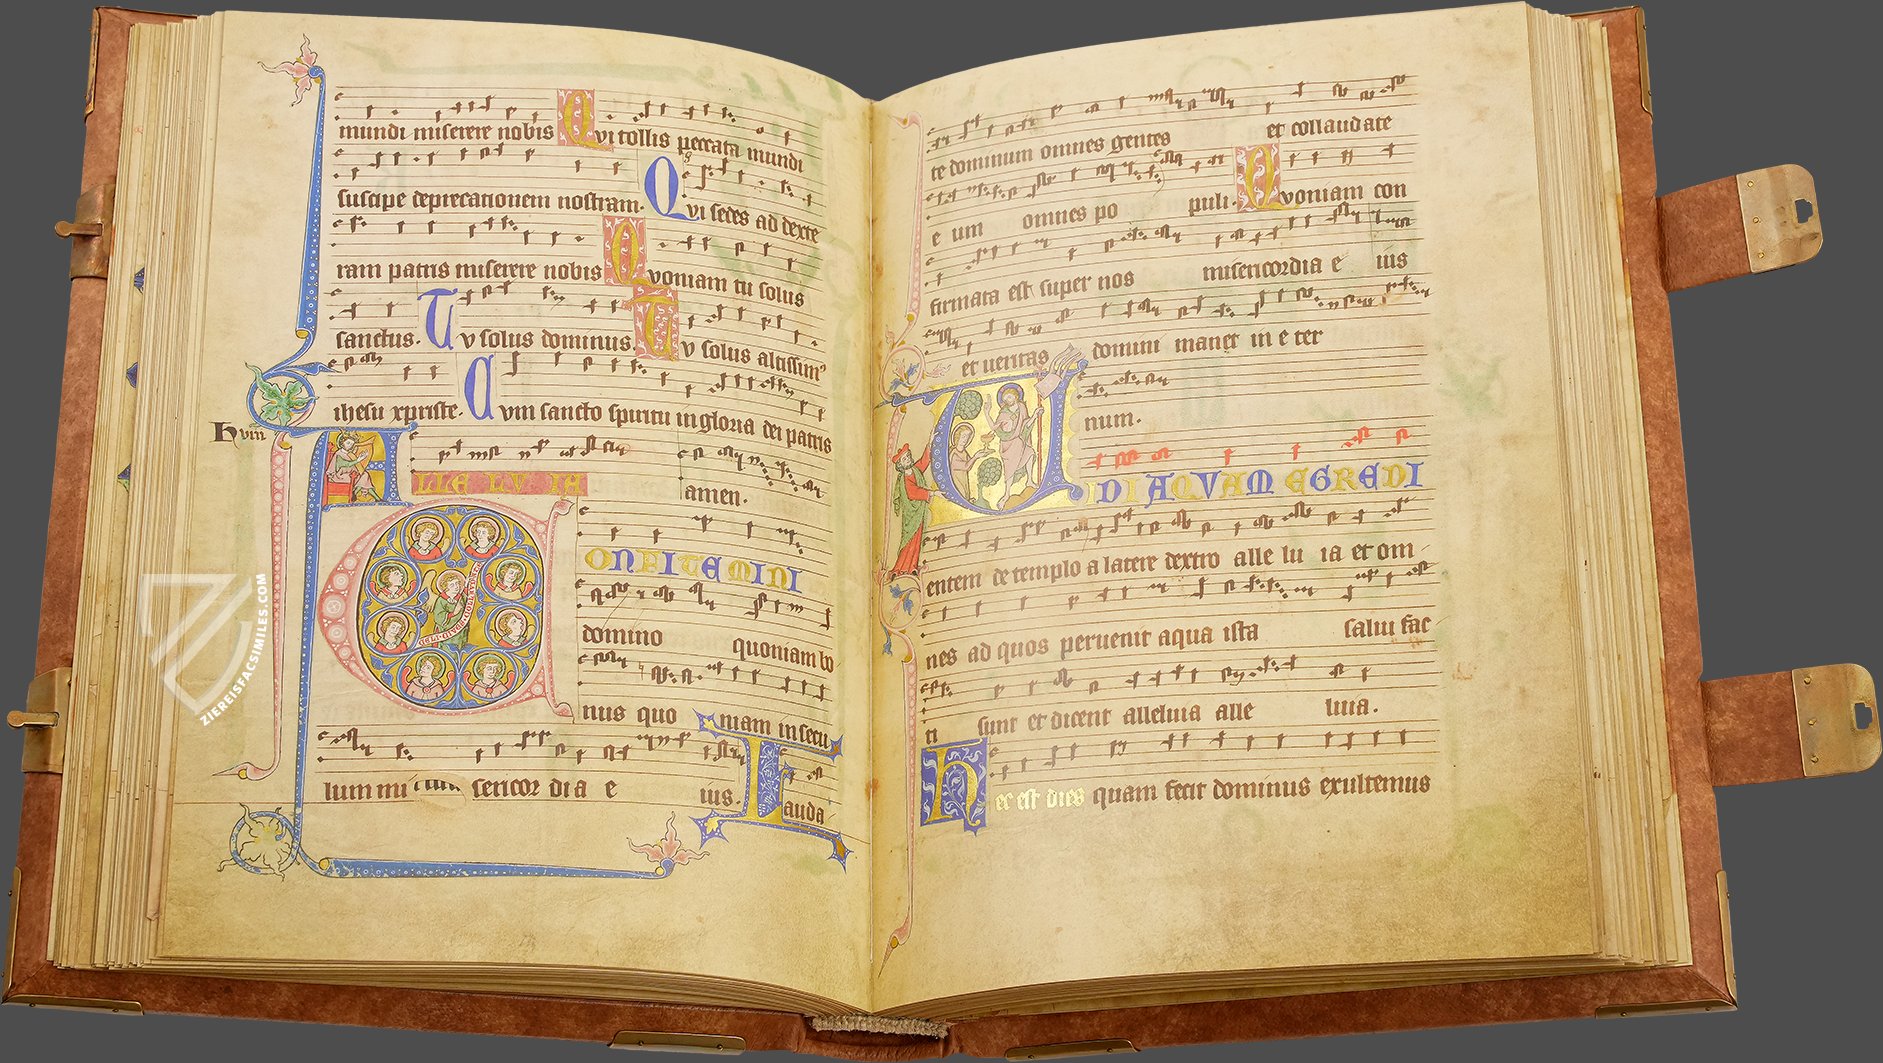 mundi miserere nobis Qvi tollis peccata mundi
suscipe deprecationem nostram. Qvi sedes ad dexte
ram patris miserere nobis Qvoniam tu solus
sanctus. Tv solus dominus. Tv solus altissim᾽
ihesu xpriste. Cvm sancto spiritu in gloria dei patris
hvm
ALLE LV IA amen.
CONFITEMINI
domino quoniam bo
nus quo niam in secu
lum mi sericor di a e ius. Lauda
te dominum omnes gentes et collaudate
e um omnes po puli. Qvoniam con
firmata est super nos misericordia e ius
et veritas domini manet in e ter
num.
VIDI AQVAM EGREDI
entem de templo a latere dextro alle lu ia et om
nes ad quos peruenit aqua ista salui fac
ti sunt et dicent alleluia alle luia.
Hec est dies quam fecit dominus exultemus
ZIEREISFACSIMILES.COM